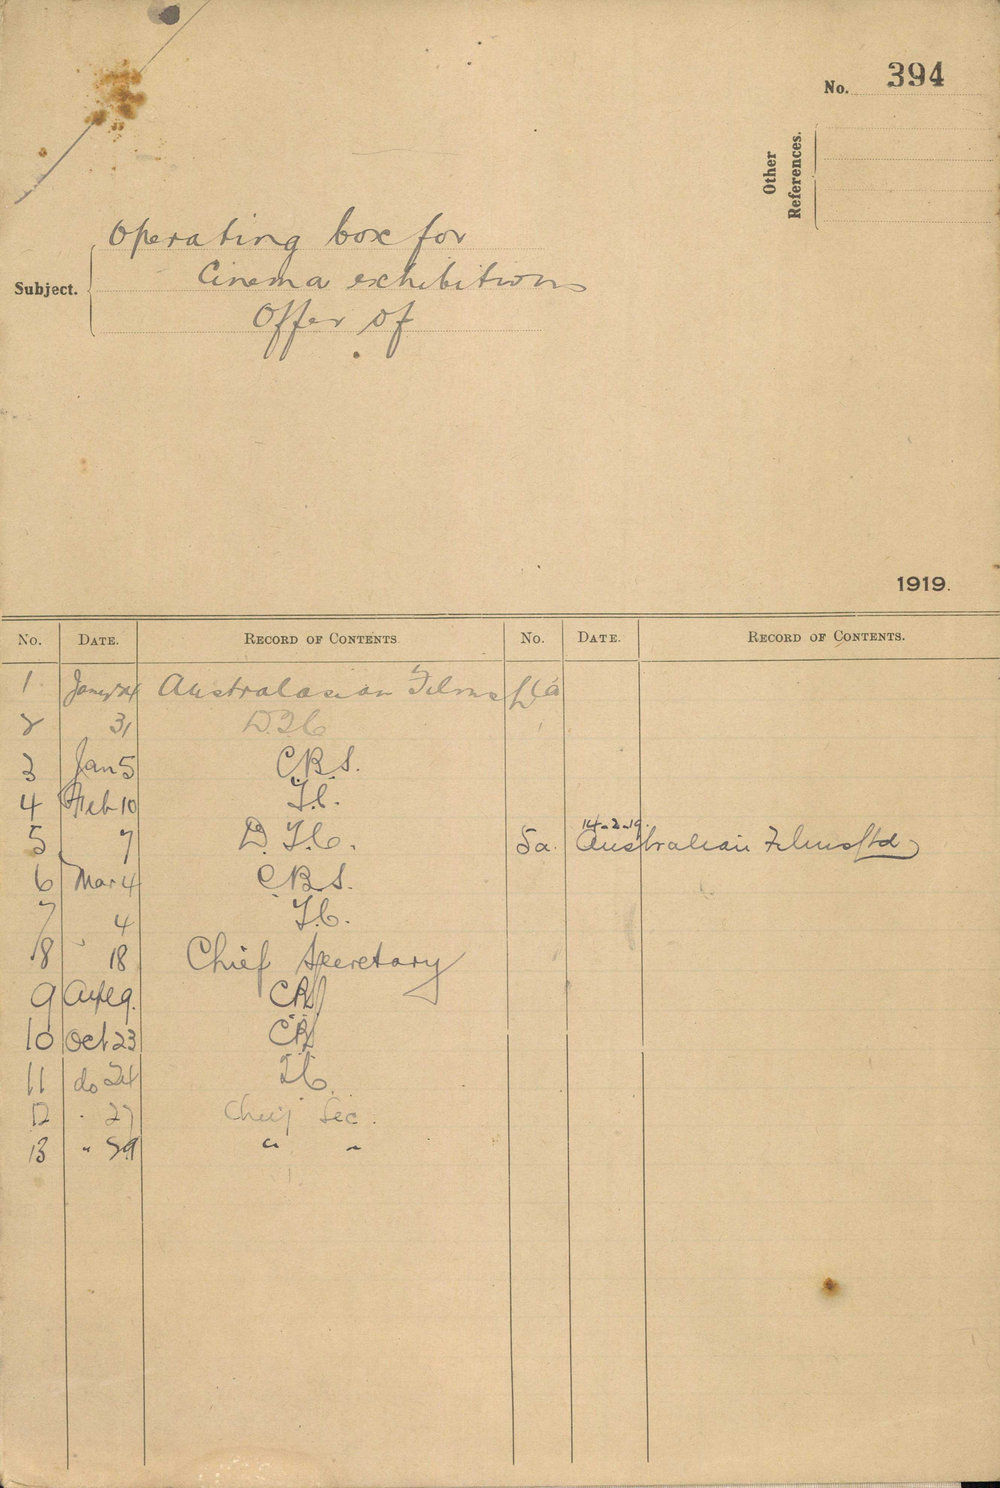 No. 394
Other References.
Operating box for
Subject. Cinema exhibitions
Offer of
1919.
No. DATE. RECORD OF CONTENTS. No. DATE. RECORD OF CONTENTS.
1 Jany 24 Australasian Films Ltd
2 31
3 Jan 5 C.R.S.
4 Feb 10 T.C.
14-2-19.
5 7 D.T.C. 5a. Australian Films Ltd
6 Mar 4 C.R.S.
7 4 T.C.
8 18 Chief Secretary
9 9. CRS
10 Oct 23 CRS
11 do 24 TC
12 " 27 Chief Sec.
13 " 29 " "